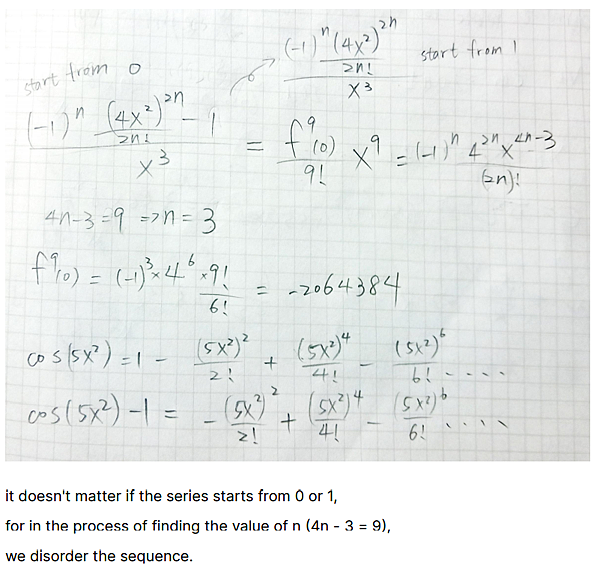 (-1)ⁿ (4x²)²ⁿ / 2n! / x³ start from 1
start from 0
((-1)ⁿ (4x²)²ⁿ / 2n! - 1) / x³ = f⁹(0) / 9! x⁹ = (-1)ⁿ 4²ⁿ x⁴ⁿ⁻³ / (2n)!
4n-3=9 => n=3
f⁹(0) = (-1)³ × 4⁶ × 9! / 6! = -2064384
cos(5x²) = 1 - (5x²)² / 2! + (5x²)⁴ / 4! - (5x²)⁶ / 6! ....
cos(5x²) - 1 = - (5x²)² / 2! + (5x²)⁴ / 4! - (5x²)⁶ / 6! ....
it doesn't matter if the series starts from 0 or 1,
for in the process of finding the value of n (4n - 3 = 9),
we disorder the sequence.